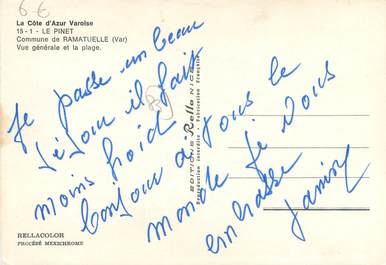 6 €
La Côte d'Azur Varoise
15 - 1 - LE PINET
Commune de RAMATUELLE (Var)
Vue générale et la plage.
Je passe un beau
séjour il fait
moins froid
bonjour à tous le
monde je vous
embrasse
EDITIONS Rella NICE
Reproduction Interdite - Fabrication Française
RELLACOLOR
PROCÉDÉ MEXICHROME